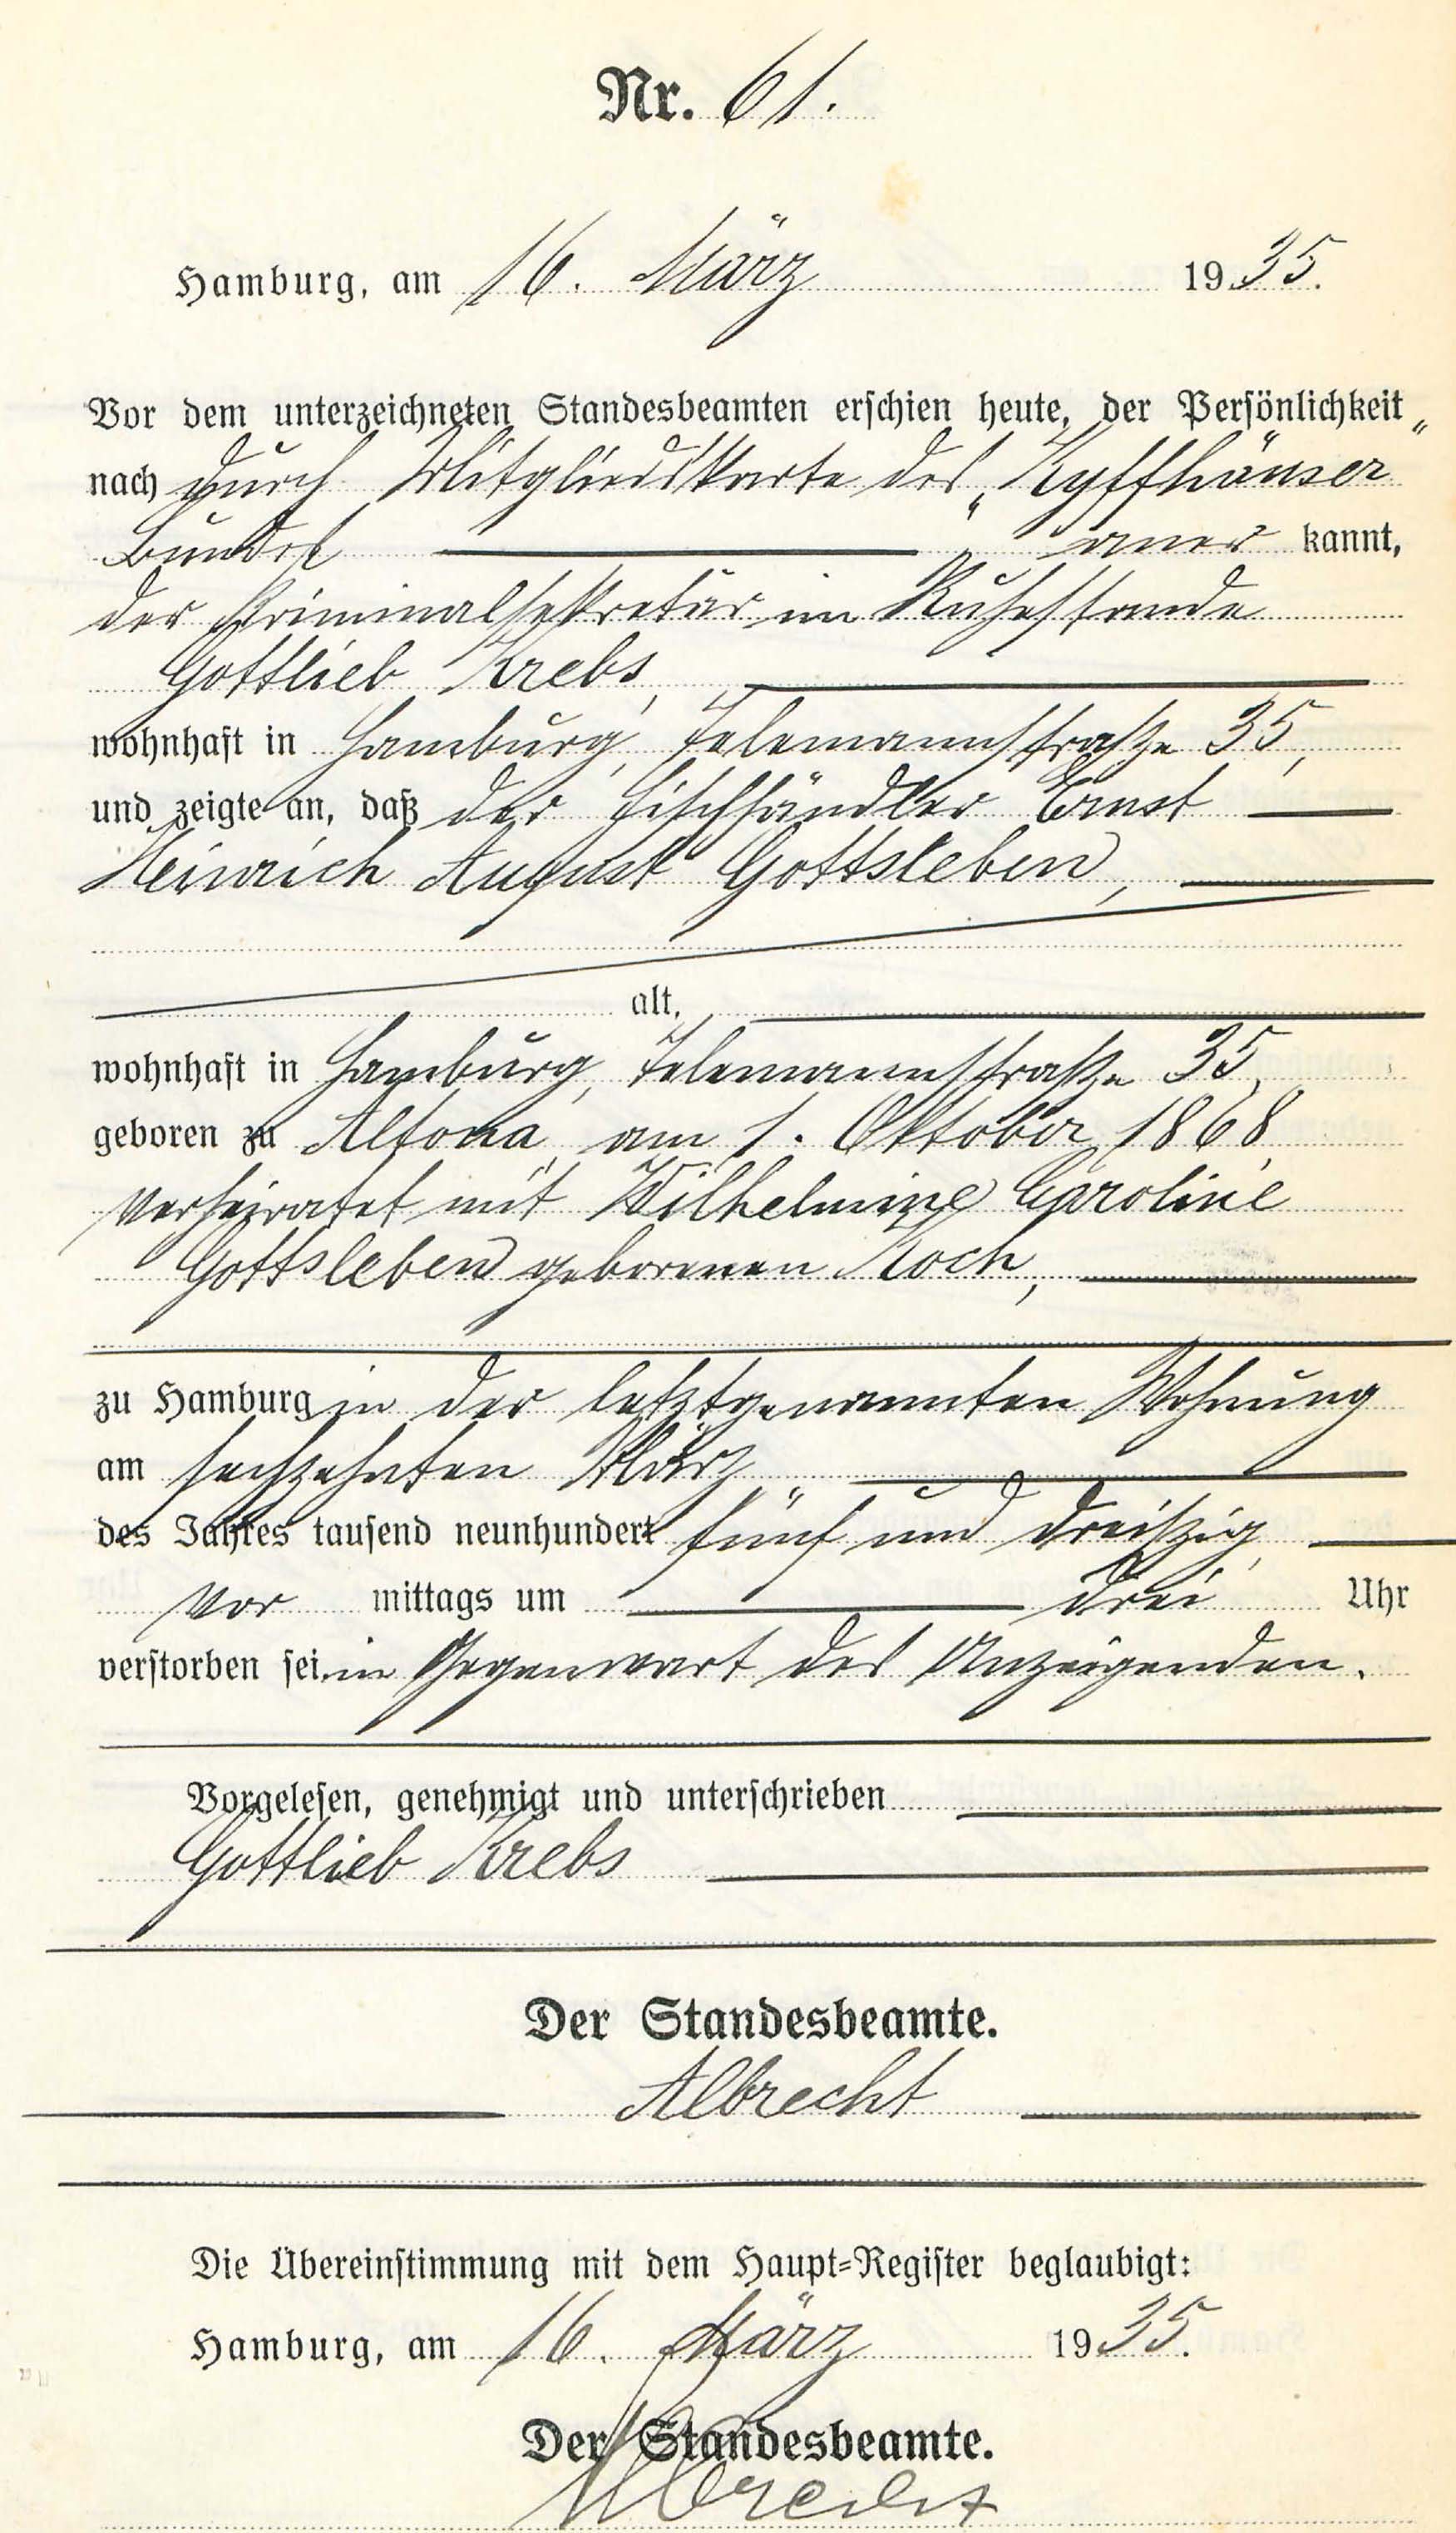 Nr. 61.
Hamburg, am 16. März 1935.
Vor dem unterzeichneten Standesbeamten erschien heute, der Persönlichkeit
nach durch Mitgliedskarte des „Kyffhäuser"
Bundes aner kannt,
der Kriminalsekretär im Ruhestande
Gottlieb Krebs,
wohnhaft in Hamburg, Telemannstraße 35,
und zeigte an, daß der Fischhändler Ernst
Heinrich August Gottsleben,
alt,
wohnhaft in Hamburg, Telemannstraße 35,
geboren zu Altona, am 1. Oktober 1868,
verheiratet mit Wilhelmine Caroline
Gottsleben geborenen Koch,
zu Hamburg in der letztgenannten Wohnung
am sechzehnten März
des Jahres tausend neunhundert fünf und dreißzig,
vor mittags um drei Uhr
verstorben sei in Gegenwart des Anzeigenden.
Vorgelesen, genehmigt und unterschrieben
Gottlieb Krebs
Der Standesbeamte.
Albrecht
Die Übereinstimmung mit dem Haupt-Register beglaubigt:
Hamburg, am 16. März 1935.
Der Standesbeamte.
Albrecht